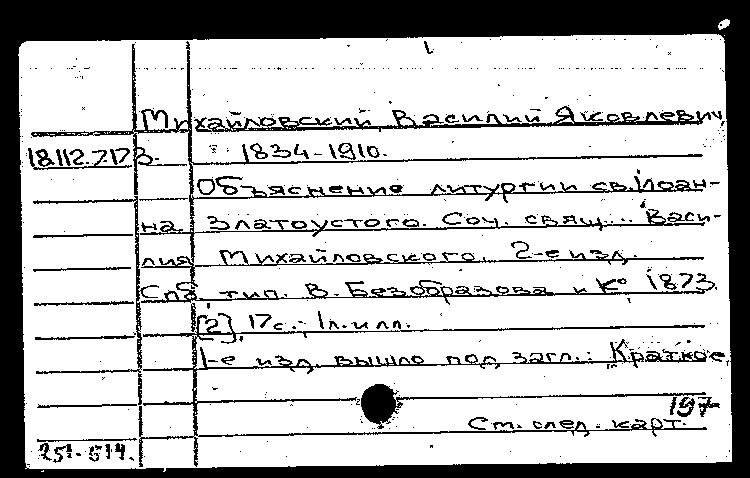 Михайловский, Василий Яковлевич
18.112.7.173. 1834-1910.
Объяснение литургии св. Иоан-
на Златоустого. Соч. свящ... Васи-
лия Михайловского. 2-е изд.
Спб, тип. В. Безобразова и К°, 1873.
[2], 17 с.; 1 л. илл.
1-е изд. вышло под загл.: "Краткое
197
См. след. карт.
251-614.